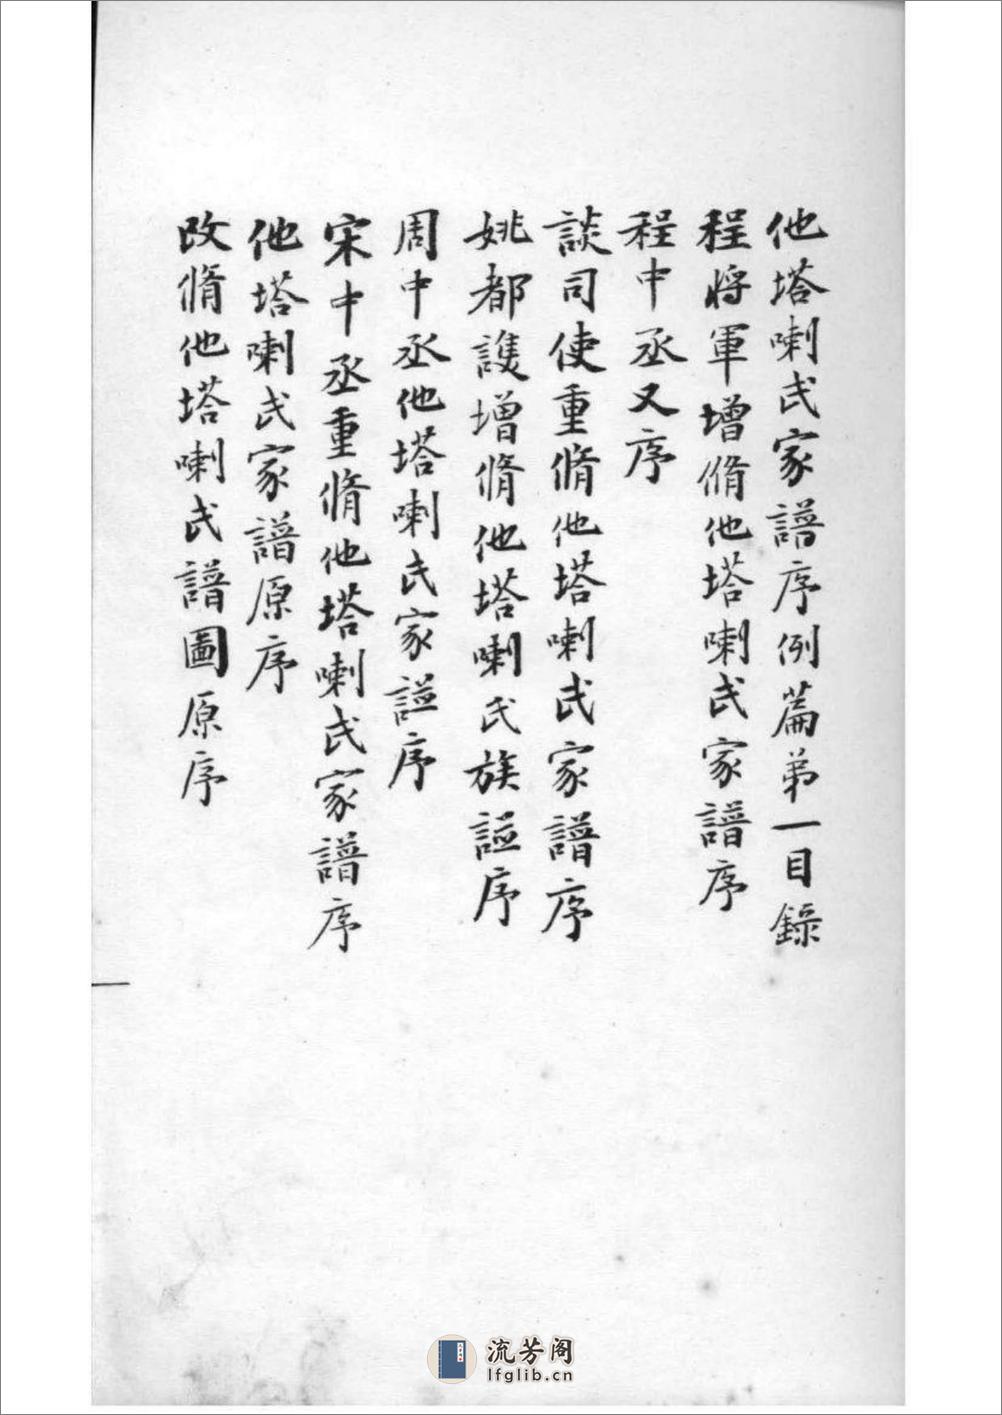 他塔喇氏家譜序例篇弟一目錄
程將軍增脩他塔喇氏家譜序
程中丞又序
談司使重脩他塔喇氏家譜序
姚都護增脩他塔喇氏族譜序
周中丞他塔喇氏家譜序
宋中丞重脩他塔喇氏家譜序
他塔喇氏家譜原序
改脩他塔喇氏譜圖原序
一
流芳阁
lfglib.cn